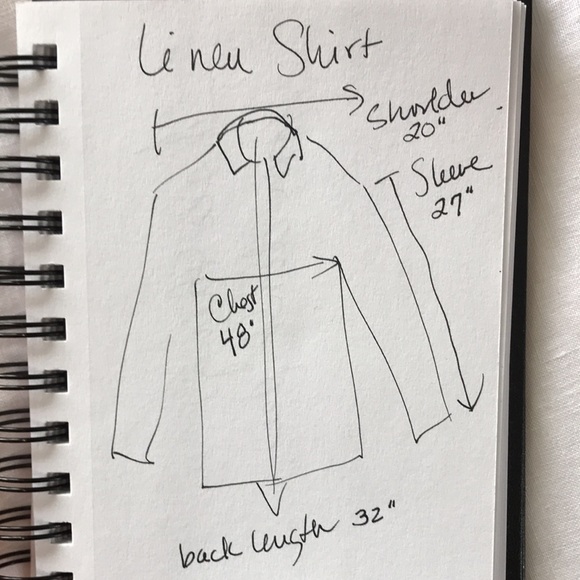 Linen Shirt
Shoulder
20"
Sleeve
27"
Chest
48"
back length 32"